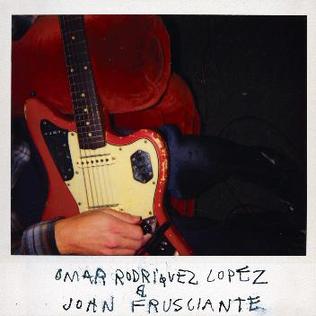 OMAR RODRIQUEZ LOPEZ
&
JOHN FRUSCIANTE